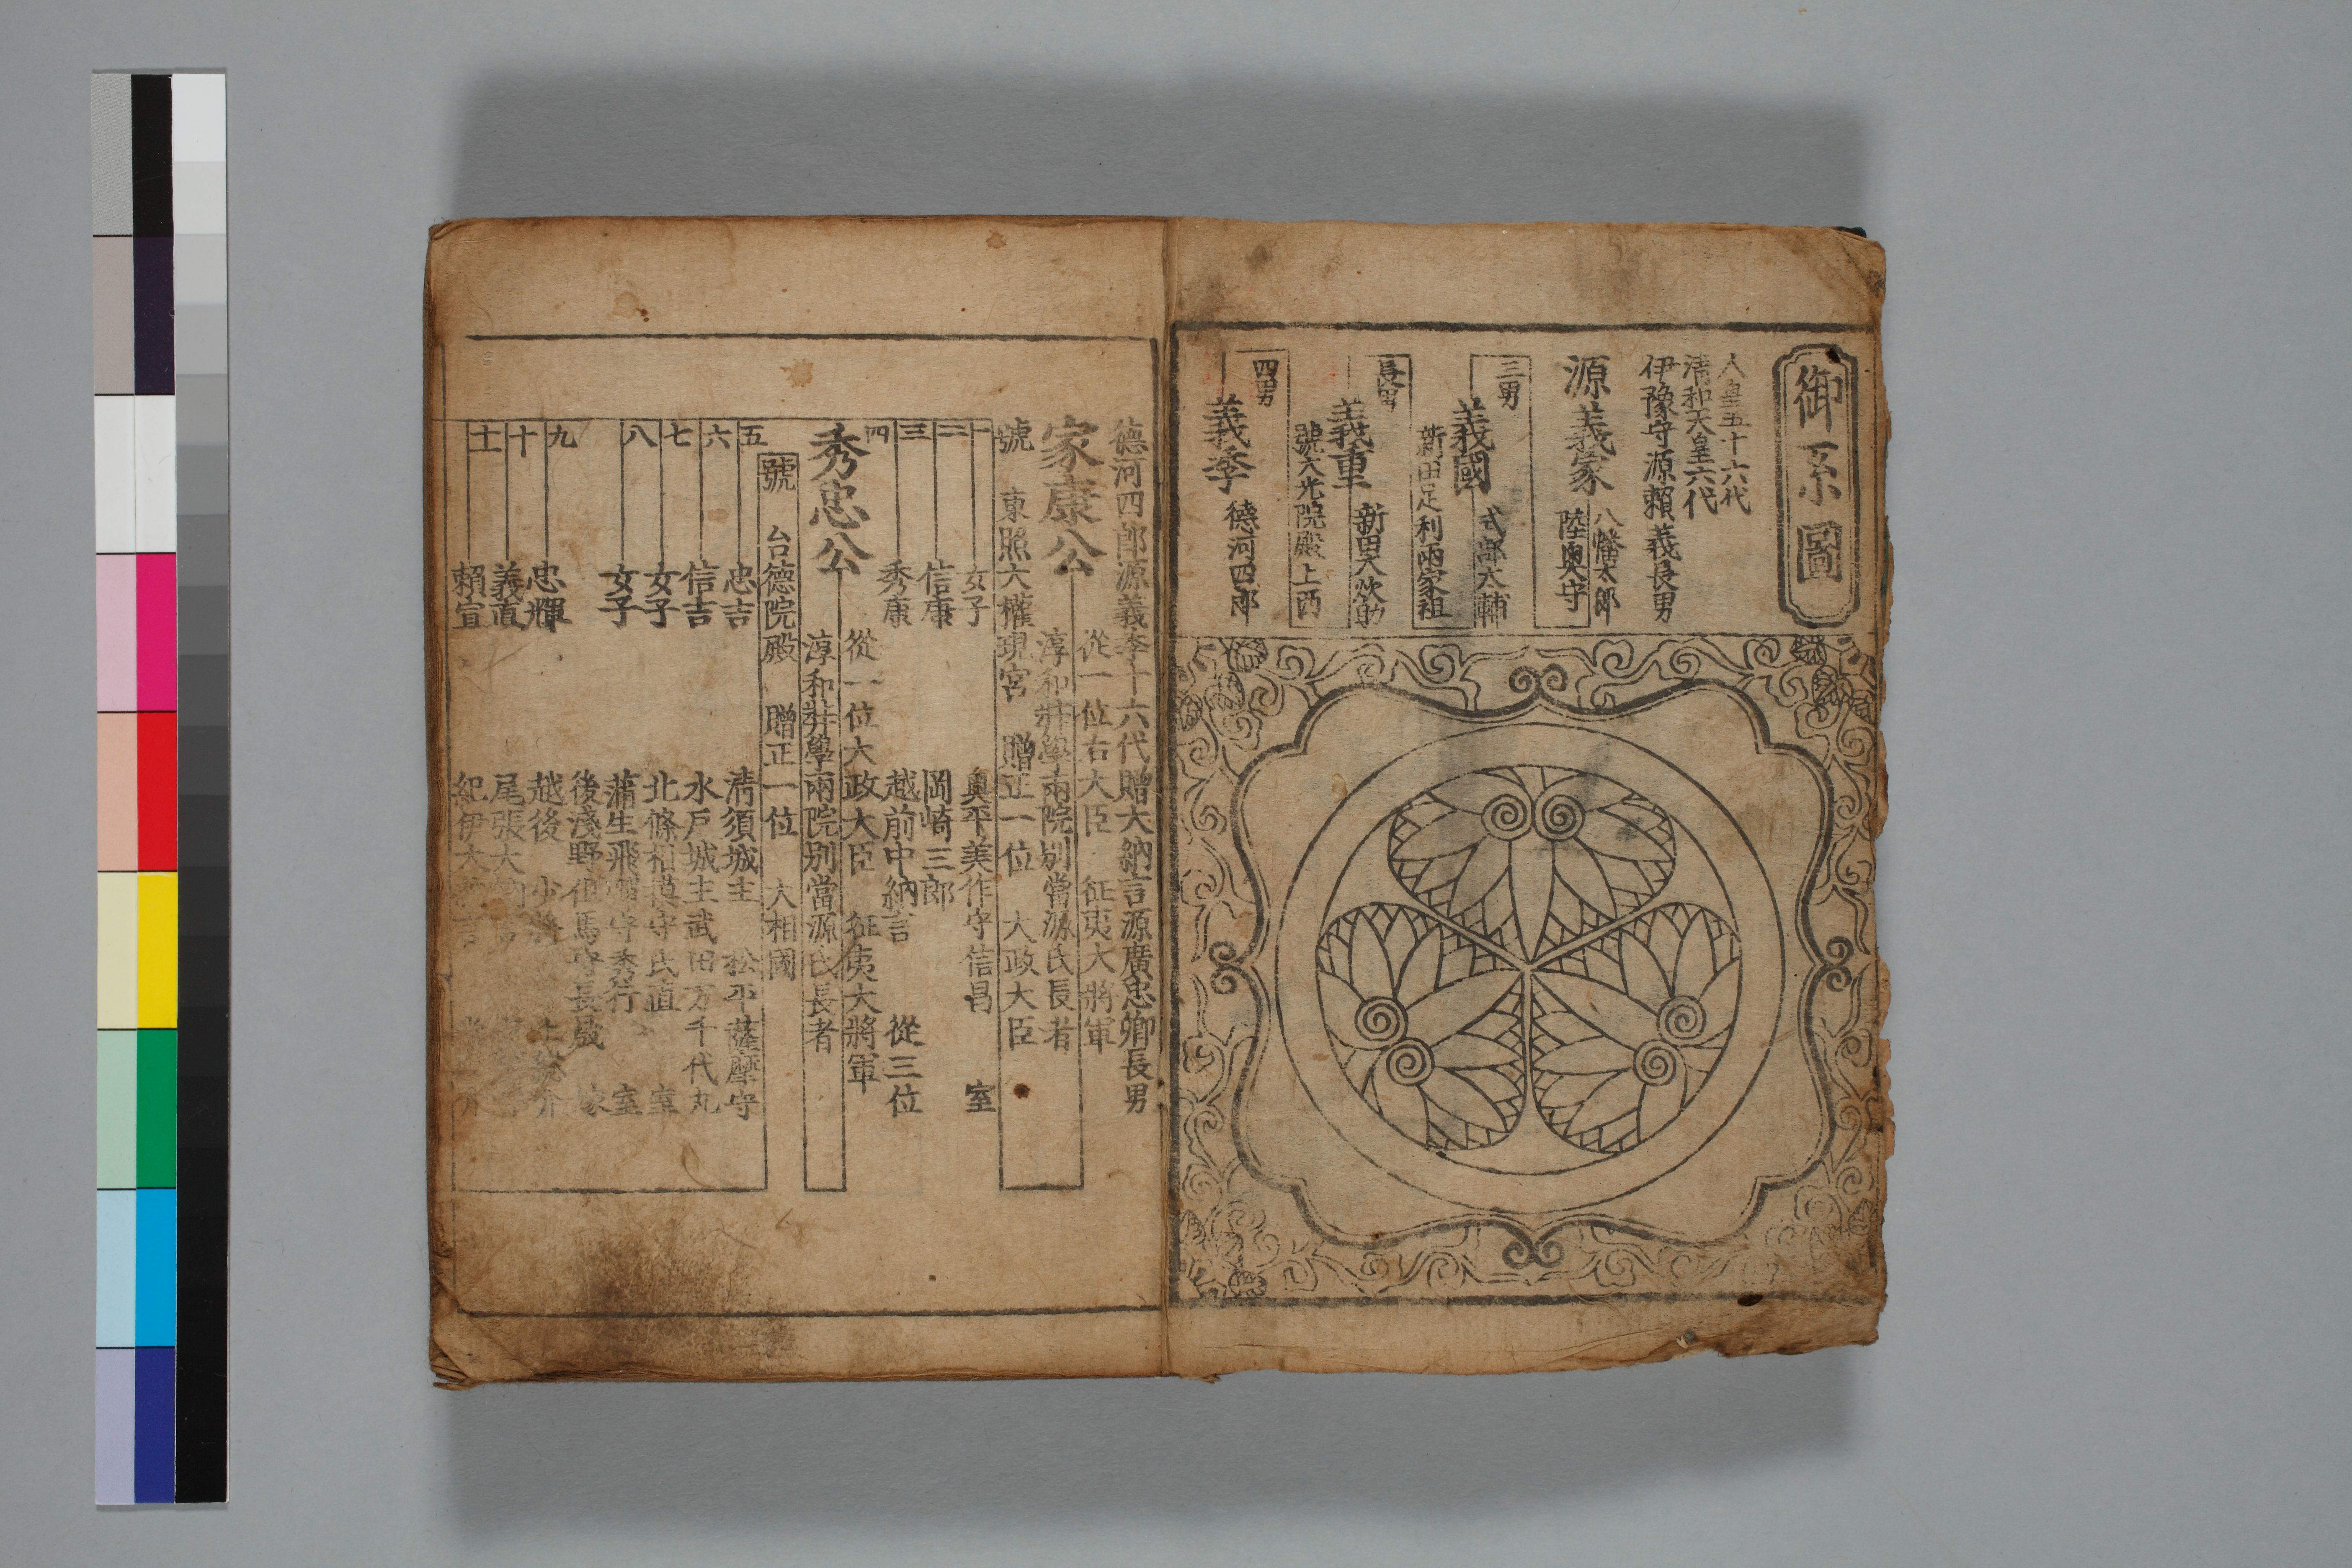 御系圖
人皇五十六代
清和天皇六代
伊豫守源賴義長男
源義家
八幡太郎
陸奥守
三男
義國
式部大輔
新田足利兩家祖
長男
義重
新田大炊助
號大光院殿上西
四男
義季
德河四郎
德河四郎源義季十六代贈大納言源廣忠卿長男
家康公
從一位右大臣 征夷大將軍
淳和弉學兩院別當源氏長者
號 東照大權現宮 贈正一位 大政大臣
一 女子 奥平美作守信昌 室
二 信康 岡崎三郎
三 秀康 越前中納言 從三位
四
秀忠公
從一位大政大臣 征夷大將軍
淳和弉學兩院別當源氏長者
號 台德院殿 贈正一位 大相國
五 忠吉 清須城主 松平薩摩守
六 信吉 水戸城主武田万千代丸
七 女子 北條相模守氏直 室
八 女子 蒲生飛騨守秀行 室
後淺野但馬守長晟 嫁
九 忠輝 越後 少將 上総介
十 義直 尾張大納言
十一 賴宣 紀伊大納言